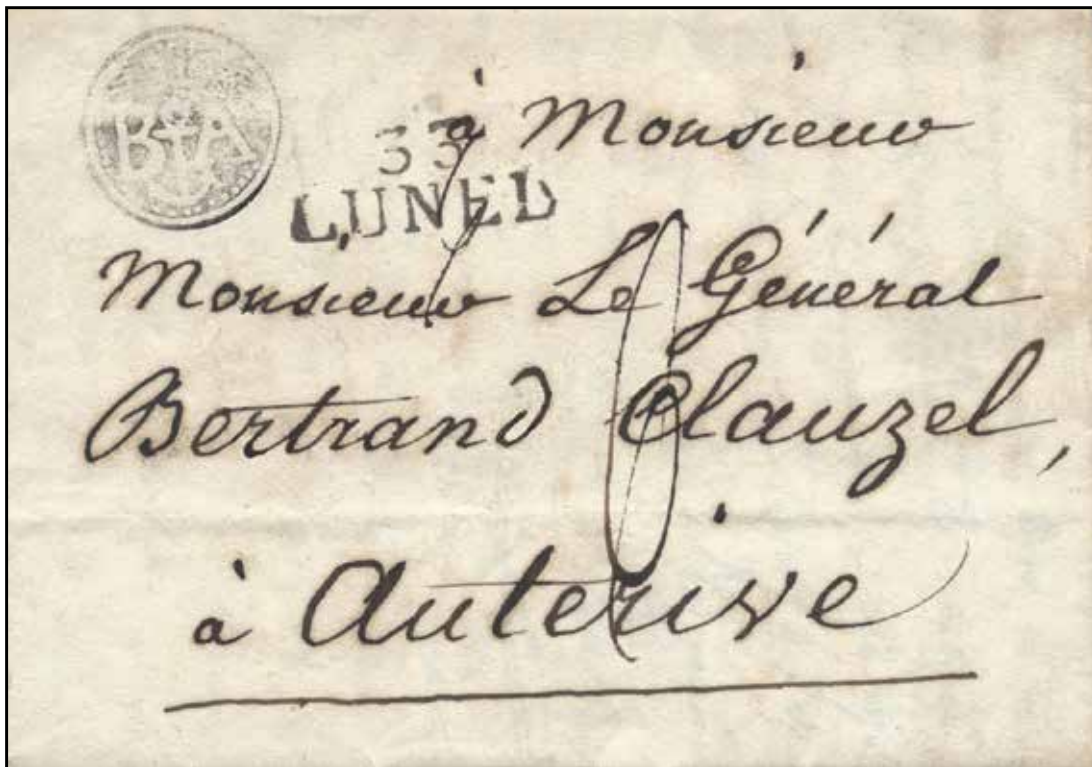 B A
33
LUNEL
à Monsieur
Monsieur Le Général
Bertrand Clauzel,
à Auterive